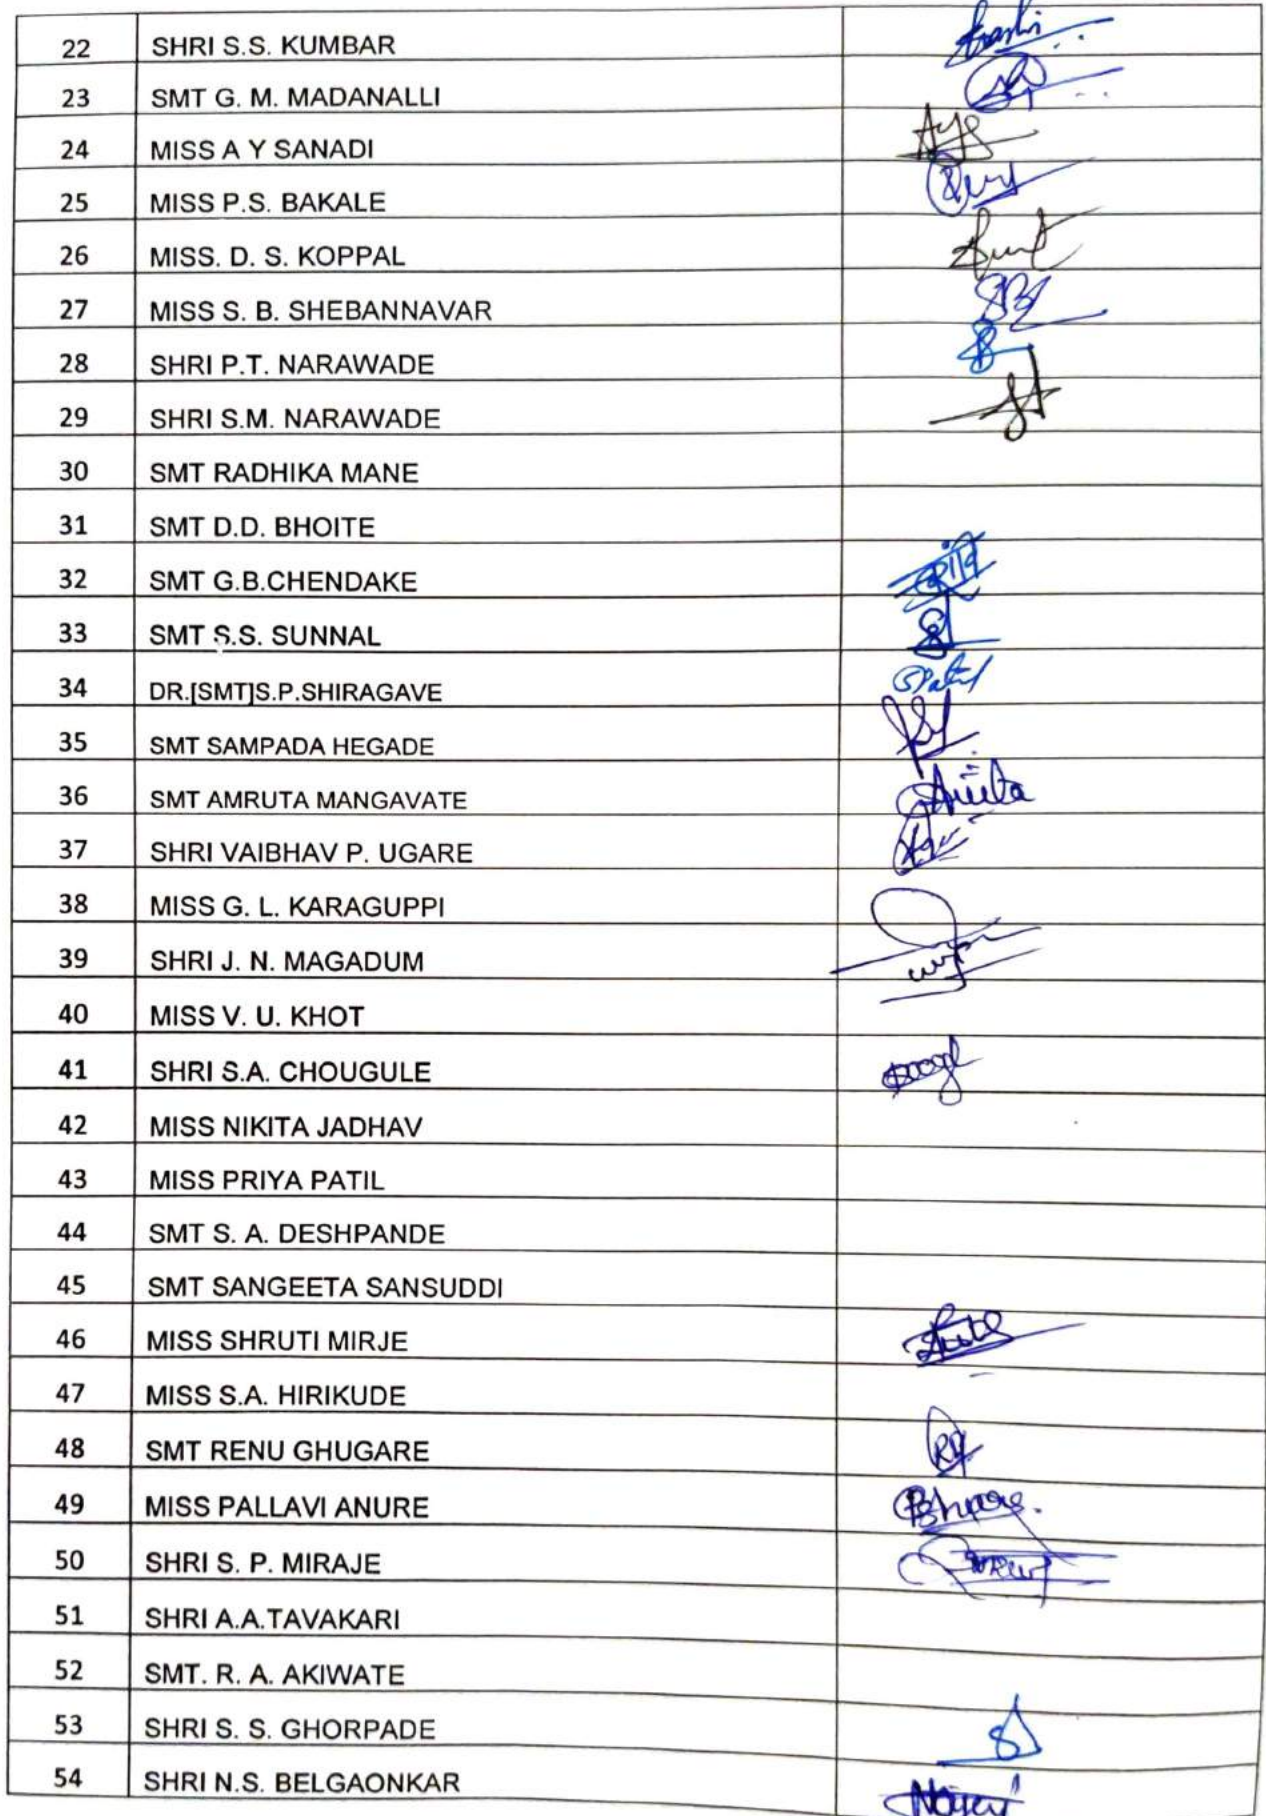 22 SHRI S.S. KUMBAR
23 SMT G. M. MADANALLI
24 MISS A Y SANADI
25 MISS P.S. BAKALE
26 MISS. D. S. KOPPAL
27 MISS S. B. SHEBANNAVAR
28 SHRI P.T. NARAWADE
29 SHRI S.M. NARAWADE
30 SMT RADHIKA MANE
31 SMT D.D. BHOITE
32 SMT G.B.CHENDAKE
33 SMT S.S. SUNNAL
34 DR.[SMT]S.P.SHIRAGAVE SPatil
35 SMT SAMPADA HEGADE
36 SMT AMRUTA MANGAVATE
37 SHRI VAIBHAV P. UGARE
38 MISS G. L. KARAGUPPI
39 SHRI J. N. MAGADUM
40 MISS V. U. KHOT
41 SHRI S.A. CHOUGULE
42 MISS NIKITA JADHAV
43 MISS PRIYA PATIL
44 SMT S. A. DESHPANDE
45 SMT SANGEETA SANSUDDI
46 MISS SHRUTI MIRJE
47 MISS S.A. HIRIKUDE
48 SMT RENU GHUGARE
49 MISS PALLAVI ANURE
50 SHRI S. P. MIRAJE
51 SHRI A.A.TAVAKARI
52 SMT. R. A. AKIWATE
53 SHRI S. S. GHORPADE
54 SHRI N.S. BELGAONKAR